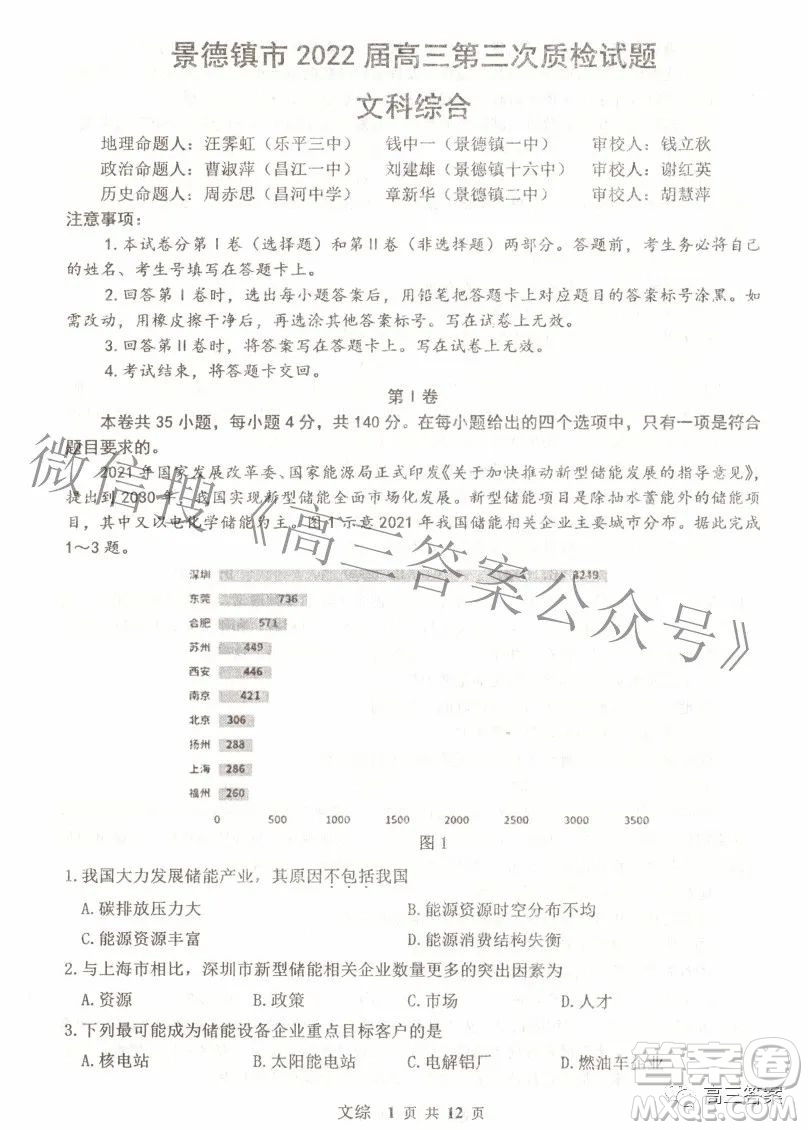 景德镇市 2022 届高三第三次质检试题
文科综合
地理命题人：汪霁虹（乐平三中） 钱中一（景德镇一中） 审校人：钱立秋
政治命题人：曹淑萍（昌江一中） 刘建雄（景德镇十六中） 审校人：谢红英
历史命题人：周赤思（昌河中学） 章新华（景德镇二中） 审校人：胡慧萍
注意事项：
1.本试卷分第Ⅰ卷（选择题）和第Ⅱ卷（非选择题）两部分。答题前，考生务必将自己
的姓名、考生号填写在答题卡上。
2.回答第Ⅰ卷时，选出每小题答案后，用铅笔把答题卡上对应题目的答案标号涂黑。如
需改动，用橡皮擦干净后，再选涂其他答案标号。写在试卷上无效。
3.回答第Ⅱ卷时，将答案写在答题卡上。写在试卷上无效。
4.考试结束，将答题卡交回。
第Ⅰ卷
本卷共 35 小题，每小题 4 分，共 140 分。在每小题给出的四个选项中，只有一项是符合
题目要求的。
2021 年国家发展改革委、国家能源局正式印发《关于加快推动新型储能发展的指导意见》，
提出到 2030 年，我国实现新型储能全面市场化发展。新型储能项目是除抽水蓄能外的储能项
目，其中又以电化学储能为主。图 1 示意 2021 年我国储能相关企业主要城市分布。据此完成
1～3 题。
深圳 3219
东莞 736
合肥 571
苏州 449
西安 446
南京 421
北京 306
扬州 288
上海 286
福州 260
0 500 1000 1500 2000 2500 3000 3500
图 1
1.我国大力发展储能产业，其原因不包括我国
A.碳排放压力大 B.能源资源时空分布不均
C.能源资源丰富 D.能源消费结构失衡
2.与上海市相比，深圳市新型储能相关企业数量更多的突出因素为
A.资源 B.政策 C.市场 D.人才
3.下列最可能成为储能设备企业重点目标客户的是
A.核电站 B.太阳能电站 C.电解铝厂 D.燃油车企业
文综 1 页 共 12 页
微信搜《高三答案公众号》
答案圈
高三答案
MXQE.COM